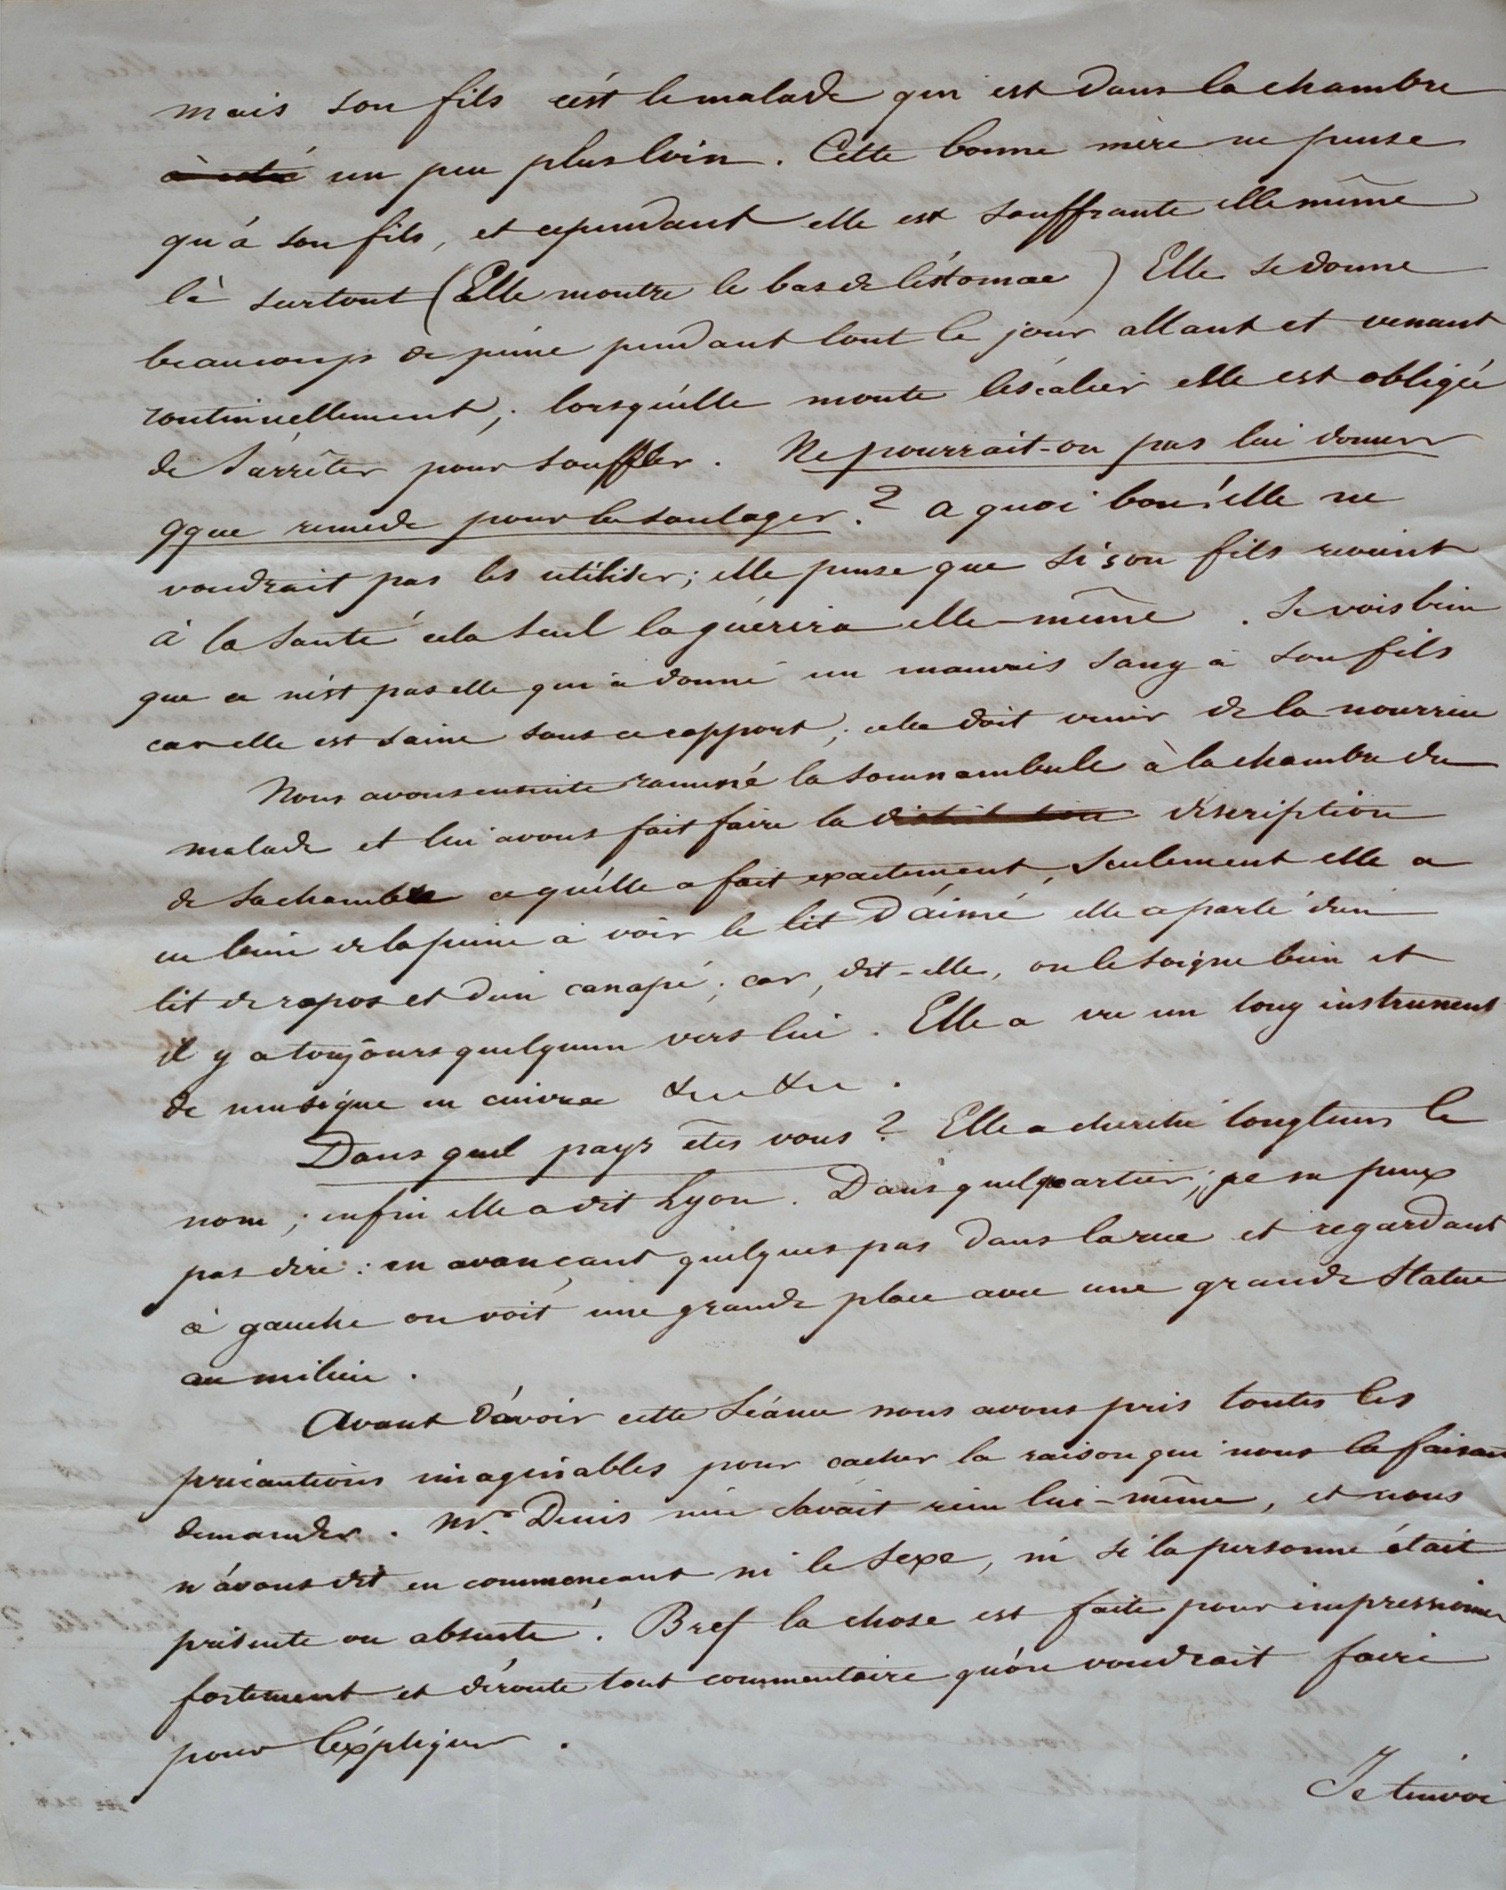 mais son fils c'est le malade qui est dans la chambre
à côté un peu plus loin. Cette bonne mère ne pense
qu'à son fils, et cependant elle est souffrante elle même
là surtout (Elle montre le bas de l'éstomac) Elle se donne
beaucoup de peine pendant tout le jour allant et venant
continuellement; lorsqu'elle monte l'escalier elle est obligée
de s'arrêter pour souffler. Ne pourrait-on pas lui donner
qque remède pour la soulager? a quoi bon! elle ne
voudrait pas les utiliser; elle pense que si son fils revient
à la santé cela seul la guérira elle-même. Je vois bien
que ce n'est pas elle qui a donné un mauvais sang à son fils
car elle est saine sous ce rapport; cela doit venir de la nourrice
Nous avons ensuite ramené la somnambule à la chambre du
malade et lui avons fait faire la description
de sa chambre ce qu'elle a fait exactement, seulement elle a
eu bien de la peine à voir le lit d'aimé, elle a parlé d'un
lit de repos et d'un canapé; car, dit-elle, on le soigne bien et
il y a toujours quelqu'un vers lui. Elle a vu un long instrument
de musique en cuivre &c &c.
Dans quel pays êtes vous? Elle a cherché longtems le
nom; enfin elle a dit Lyon. Dans quel quartier; je ne peux
pas dire: en avançant quelques pas dans la rue et regardant
à gauche on voit une grande place avec une grande statue
au milieu.
Avant d'avoir cette séance nous avons pris toutes les
précautions imaginables pour cacher la raison qui nous la faisait
demander. Mr. Denis n'en savait rien lui-même, et nous
n'avons dit en commençant ni le sexe, ni si la personne était
présente ou absente. Bref la chose est faite pour impressionner
fortement et déroute tout commentaire qu'on voudrait faire
pour l'expliquer.
Je t'envoi